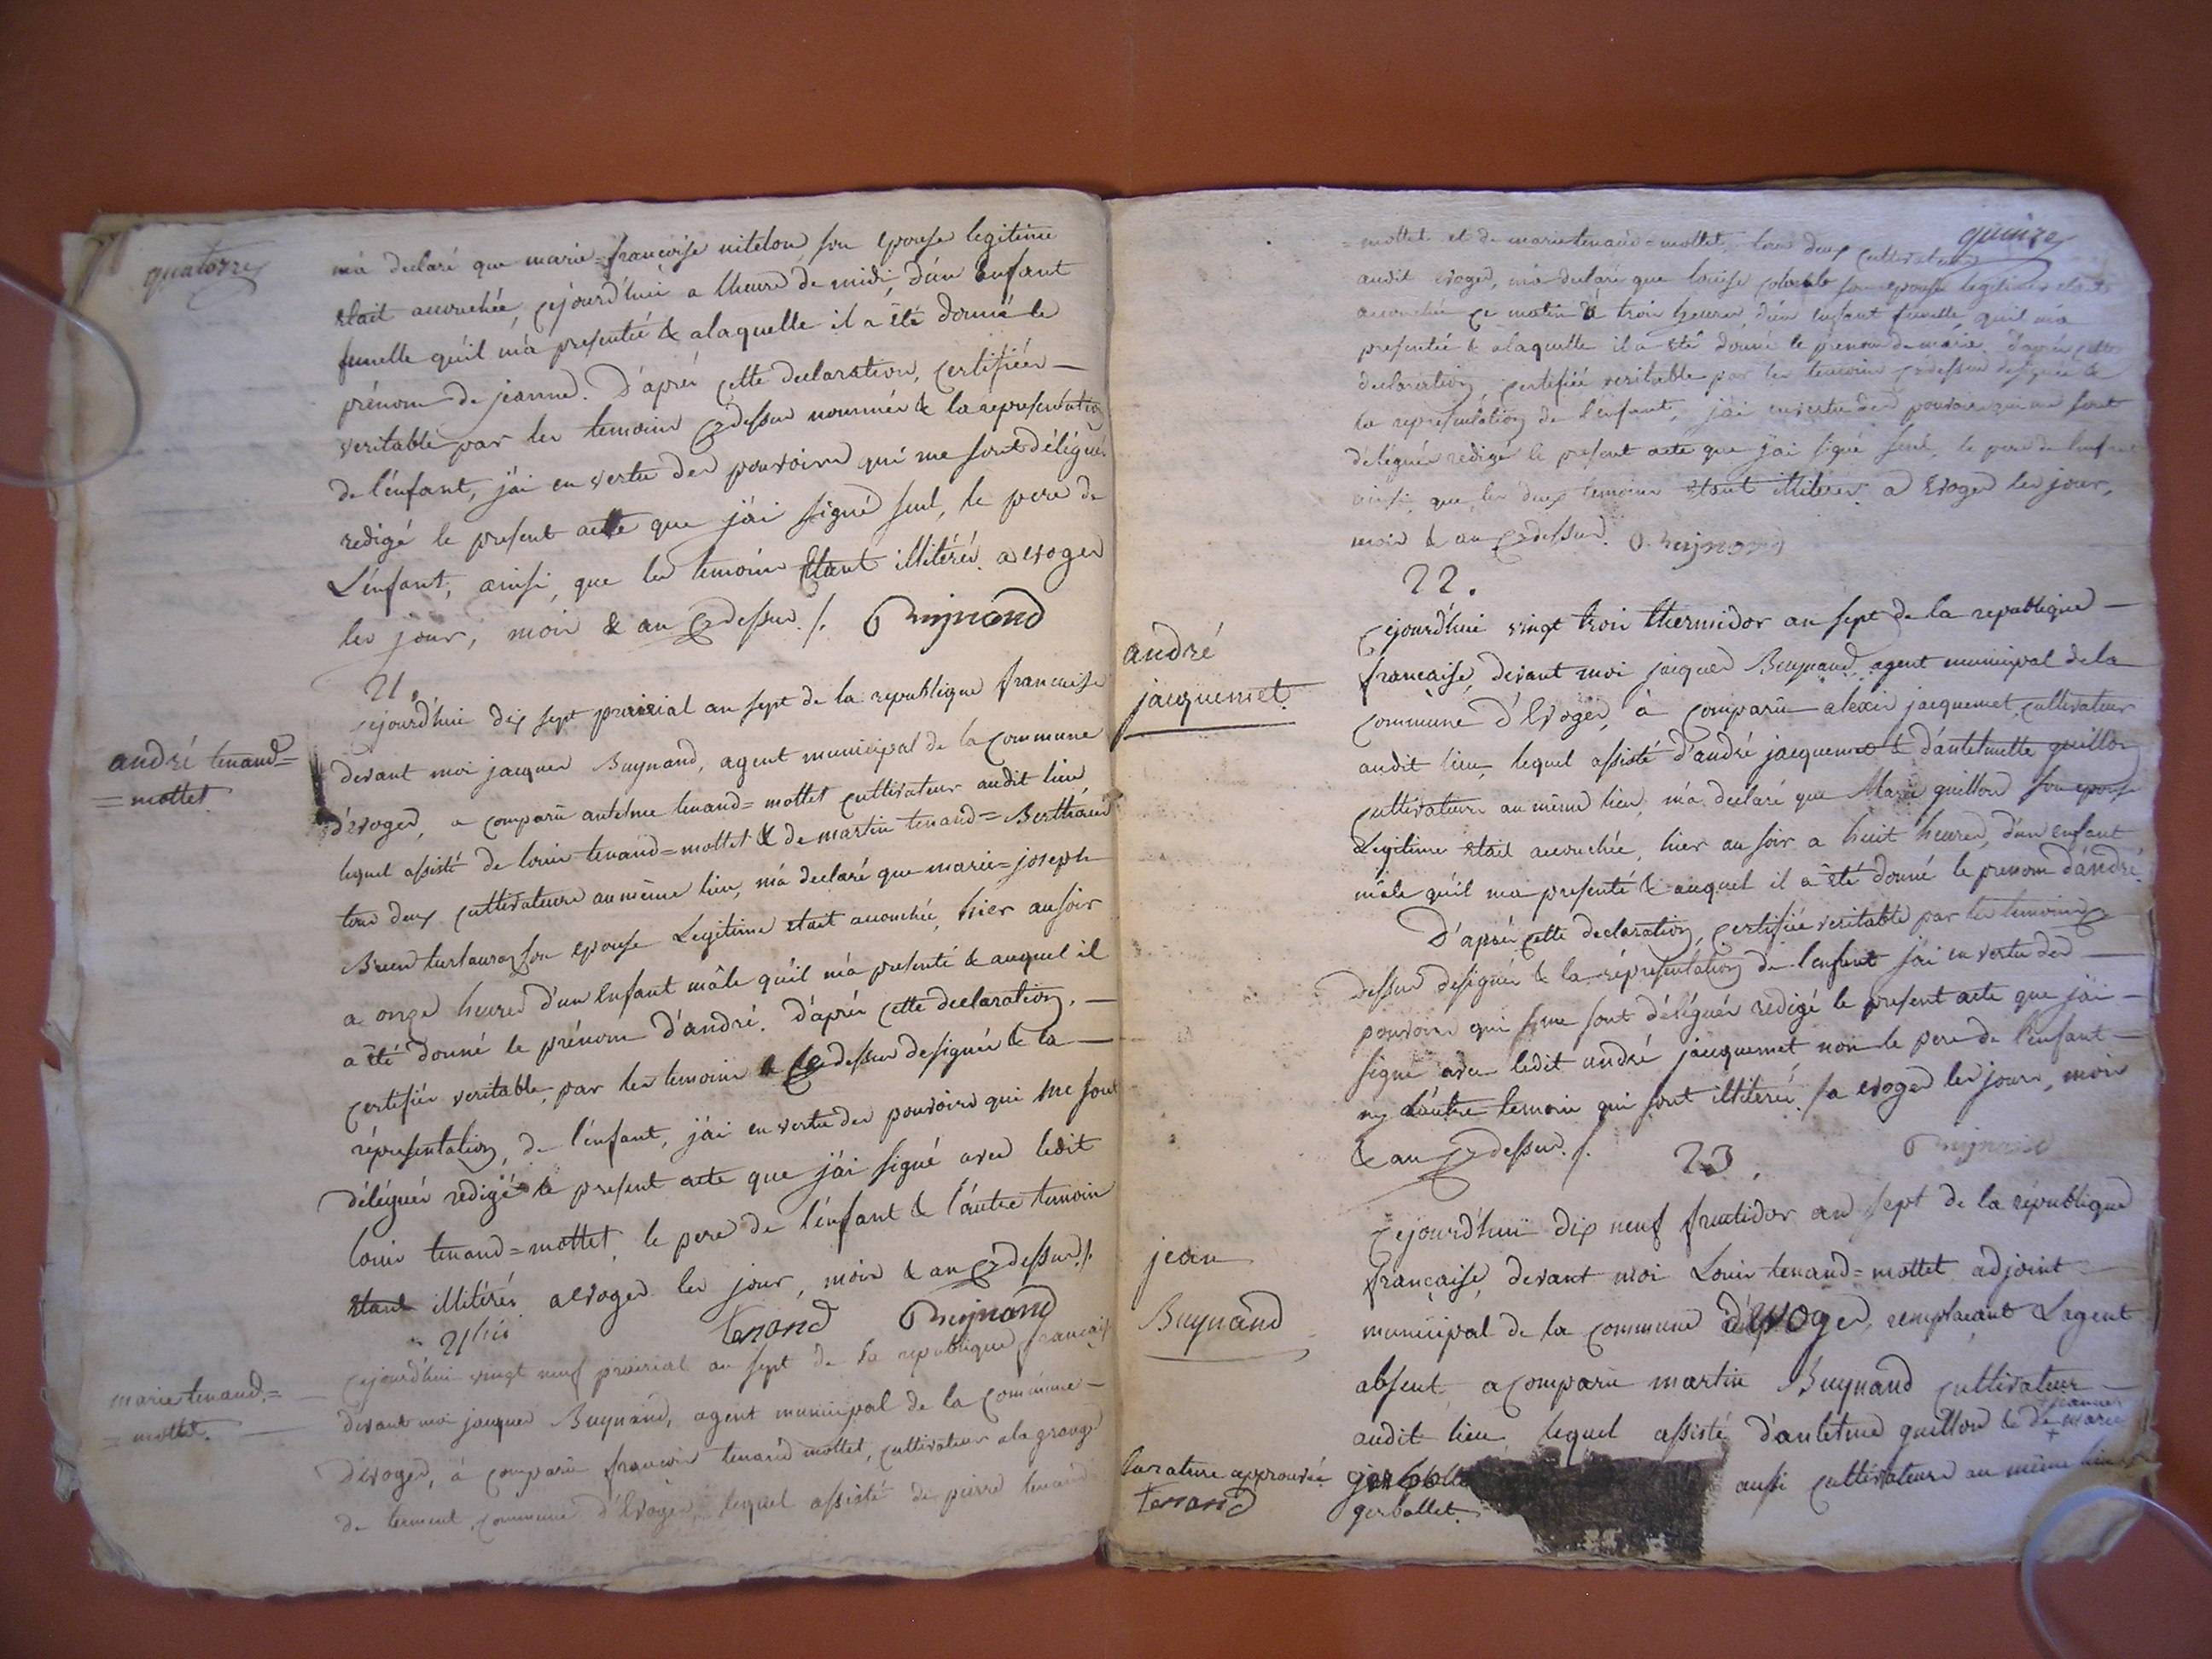 quatorze
m'a declaré que marie=françoise vitelou son epouse legitime
etait accouchée, cejourd'hui a l'heure de midi, d'un enfant
femelle qu'il m'a presentée & a laquelle il a été donné le
prénom de jeanne. D'aprés cette declaration, certifiée —
veritable par les temoins cydessus nommés & la representation
de l'enfant, j'ai en vertu des pouvoirs qui me sont délégués
redigé le present acte que j'ai signé seul, le pere de
L'enfant, ainsi que les temoins étant illitérés. a evoges
les jour, mois & an cydessus ./. Buynand
21.
andré tenand=
=mottet
cejourd'hui dix sept prairial an sept de la republique francaise
devant moi jacques Buynand, agent municipal de la commune
d'evoges, a comparû antelme tenand=mottet cultivateur audit lieu
lequel assisté de louis tenand=mottet & de martin tenand=
tous deux cultivateurs au même lieu, m'a declaré que marie=joseph
son epouse Legitime etait accouchée, hier au soir
a onze heures d'un Enfant mâle qu'il m'a presenté & auquel il
a été donné le prénom d'andré. D'aprés cette declaration, —
certifiée veritable, par les temoins cydessus designés & la —
réprésentation, de l'enfant, j'ai en vertu des pouvoirs qui me sont
délégués redigé le present acte que j'ai signé avec ledit
louis tenand=mottet, le pere de l'enfant & l'autre temoin
étant illitérés. a evoges les jour, mois & an cydessus ./.
tenand Buynand
21 bis
marie tenand=
=mottet.
cejourd'hui vingt neuf prairial an sept de la republique francaise
devant moi jacques Buynand, agent municipal de la commune —
d'evoges, à comparû françois tenand mottet, cultivateur a la grange
de commune d'Evoges, lequel assisté de pierre tenand
quinze
=mottet et de marie tenand=mottet, tous deux cultivateurs
audit evoges, m'a declaré que louise son epouse legitime etait
accouchée ce matin à trois heures, d'un enfant femelle, qu'il m'a
presentée & a laquelle il a été donné le prenom de marie. D'aprés cette
declaration, certifiée veritable par les temoins cydessus designés &
la representation de l'enfant, j'ai en vertu des pouvoirs qui me sont
délégués redigé le present acte que j'ai signé seul, le pere de l'enfant
ainsi que les deux temoins étant illitérés. a Evoges les jour,
mois & an cydessus. Buynand
22.
andré
jacquemet.
cejourd'hui vingt trois thermidor an sept de la republique —
francaise, devant moi jacques Buynand, agent municipal de la
commune d'Evoges, à comparû alexis jacquemet, cultivateur
audit lieu, lequel assisté d'andré jacquemet & d'antelmette guillon
cultivateurs au même lieu, m'a declaré que Marie guillon son epouse
Legitime etait accouchée, hier au soir a huit heures, d'un enfant
mâle qu'il m'a presenté & auquel il a été donné le prenom d'andré.
D'aprés cette declaration, certifiée veritable par les temoins cy
dessus designés & la réprésentation de l'enfant j'ai en vertu des —
pouvoirs qui me sont délégués redigé le present acte que j'ai —
signé avec ledit andré jacquemet, non le pere de l'enfant —
ny l'autre temoin qui sont illitérés. a evoges les jour, mois
& an cydessus ./. Buynand
23.
jean
Buynand
cejourd'hui dix neuf fructidor an sept de la république
française, devant moi Louis tenand=mottet adjoint —
municipal de la commune d'evoges, remplaçant L'agent
absent, a comparû martin Buynand cultivateur —
audit lieu, lequel assisté d'antelme guillon & de marie
jeanne
aussi cultivateurs au même lieu
gerbollet.
rature approuvée
tenand